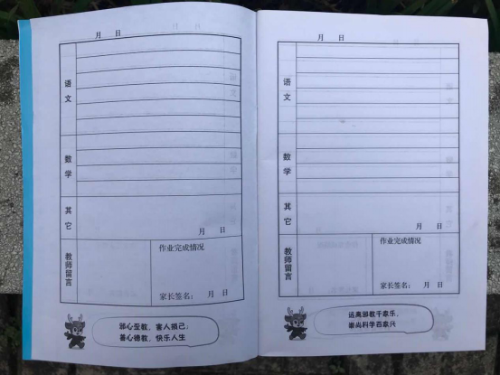 月 日
语文
数学
其它
月 日
教师留言
作业完成情况
家长签名： 月 日
邪心至教，害人损己；
善心德教，快乐人生
月 日
语文
数学
其它
月 日
教师留言
作业完成情况
家长签名： 月 日
远离邪教千家乐，
崇尚科学百家兴